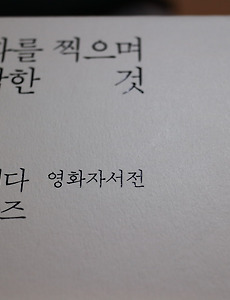 화를 찍으며
각한 것
다 영화자서전
즈